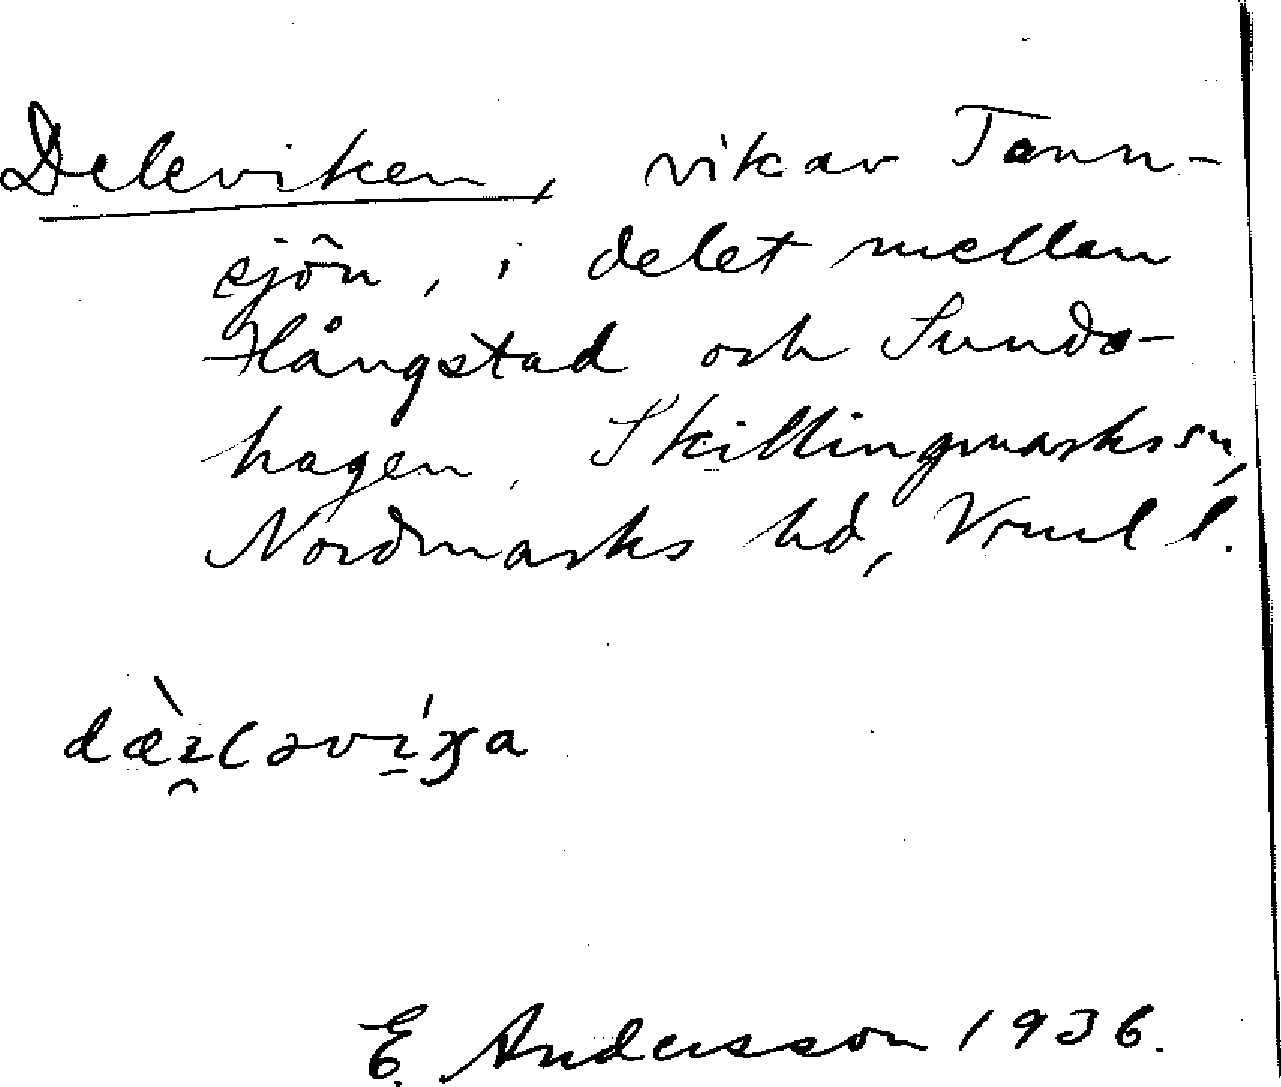 Deleviken, vik av Tann-
sjön, i delet mellan
Hångstad och Sunda-
hagen, Skillingmarks sn,
Nordmarks hd, Vrml l.
E. Andersson 1936.